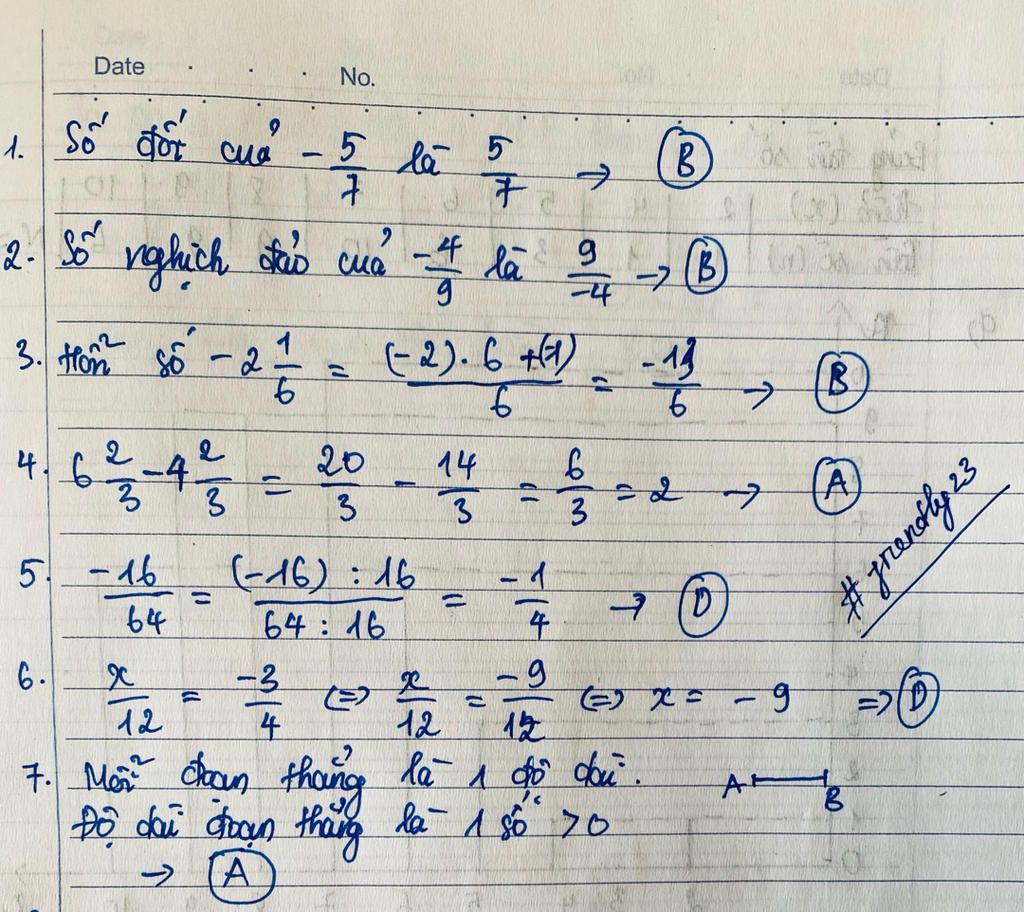 Date No.
1. Số đối của -5/7 là 5/7 → B
2. Số nghịch đảo của -4/9 là 9/-4 → B
3. Hỗn số -2 1/6 = (-2).6+(-1)/6 = -13/6 → B
4. 6 2/3 - 4 2/3 = 20/3 - 14/3 = 6/3 = 2 → A
#friendly23
5. -16/64 = (-16):16/64:16 = -1/4 → D
6. x/12 = -3/4 <=> x/12 = -9/12 <=> x = -9 => D
7. Mỗi đoạn thẳng là 1 độ dài. A B
Độ dài đoạn thẳng là 1 số >0
→ A